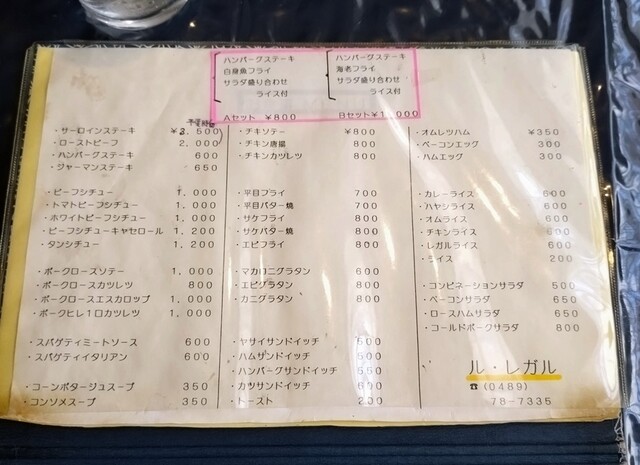 ハンバーグステーキ
白身魚フライ
サラダ盛り合わせ
ライス付
Aセット ¥800
ハンバーグステーキ
海老フライ
サラダ盛り合わせ
ライス付
Bセット ¥1,000
・サーロインステーキ ¥2,500
・ローストビーフ 2,000
・ハンバーグステーキ 600
・ジャーマンステーキ 650
・ビーフシチュー 1,000
・トマトビーフシチュー 1,000
・ホワイトビーフシチュー 1,000
・ビーフシチューキャセロール 1,200
・タンシチュー 1,200
・ポークロースソテー 1,000
・ポークロースカツレツ 800
・ポークロースエスカロップ 1,000
・ポークヒレ1口カツレツ 1,000
・スパゲティミートソース 600
・スパゲティイタリアン 600
・コーンポタージュスープ 350
・コンソメスープ 350
・チキンソテー ¥800
・チキン唐揚 800
・チキンカツレツ 800
・平目フライ 700
・平目バター焼 700
・サケフライ 800
・サケバター焼 800
・エビフライ 800
・マカロニグラタン 600
・エビグラタン 800
・カニグラタン 800
・ヤサイサンドイッチ 500
・ハムサンドイッチ 500
・ハンバーグサンドイッチ 550
・カツサンドイッチ 600
・トースト 200
・オムレツハム ¥350
・ベーコンエッグ 300
・ハムエッグ 300
・カレーライス 600
・ハヤシライス 600
・オムライス 600
・チキンライス 600
・レガルライス 600
・ライス 200
・コンビネーションサラダ 500
・ベーコンサラダ 650
・ロースハムサラダ 650
・コールドポークサラダ 800
ル・レガル
☎(0489)
78-7335